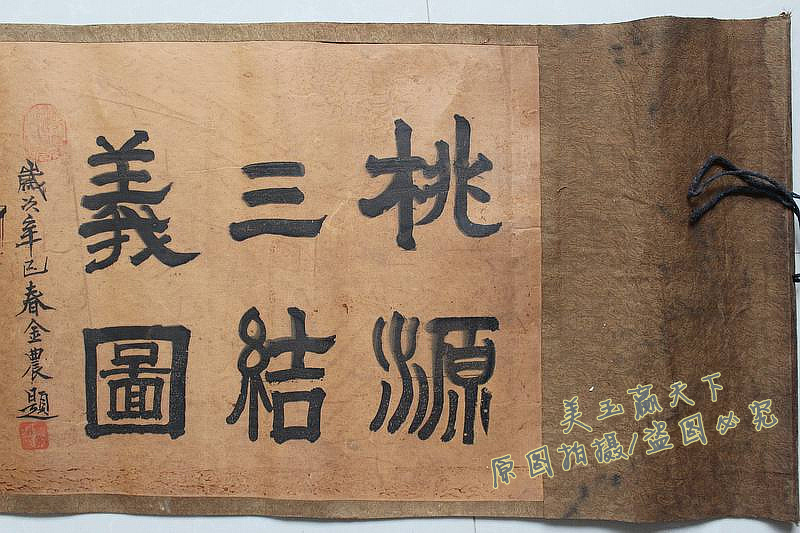 桃源
三結
義圖
歲次辛巳春金農題
美玉赢天下
原图拍摄/盗图必究